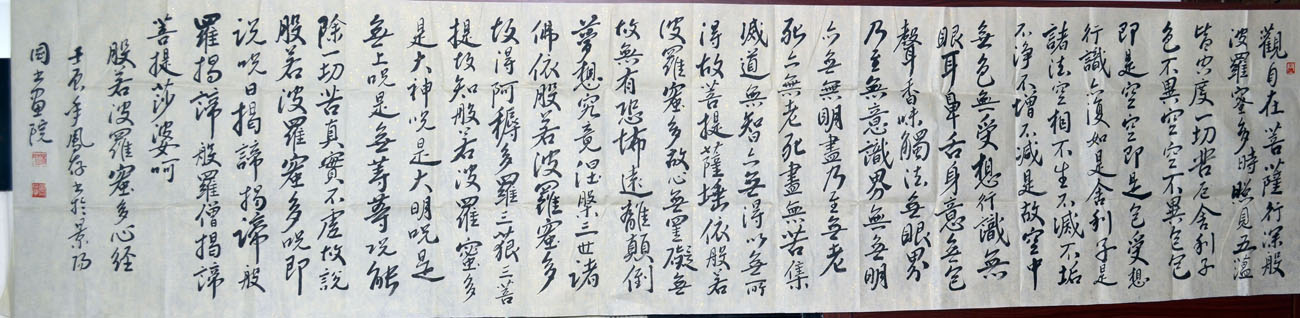 觀自在菩薩行深般
波羅蜜多時照見五蘊
皆空度一切苦厄舍利子
色不異空空不異色色
即是空空即是色受想
行識亦復如是舍利子是
諸法空相不生不滅不垢
不淨不增不減是故空中
無色無受想行識無
眼耳鼻舌身意無色
聲香味觸法無眼界
乃至無意識界無無明
亦無無明盡乃至無老
死亦無老死盡無苦集
滅道無智亦無得以無所
得故菩提薩埵依般若
波羅蜜多故心無罣礙無
故無有恐怖遠離顛倒
夢想究竟涅槃三世诸
佛依般若波羅蜜多
故得阿耨多羅三藐三菩
提故知般若波羅蜜多
是大神呪是大明呪是
無上呪是無等等呪能
除一切苦真實不虛故說
般若波羅蜜多呪即
说呪曰揭諦揭諦般
羅揭諦般羅僧揭諦
菩提莎婆呵
般若波羅蜜多心经
壬辰年鳳存书於景阳
囯书画院